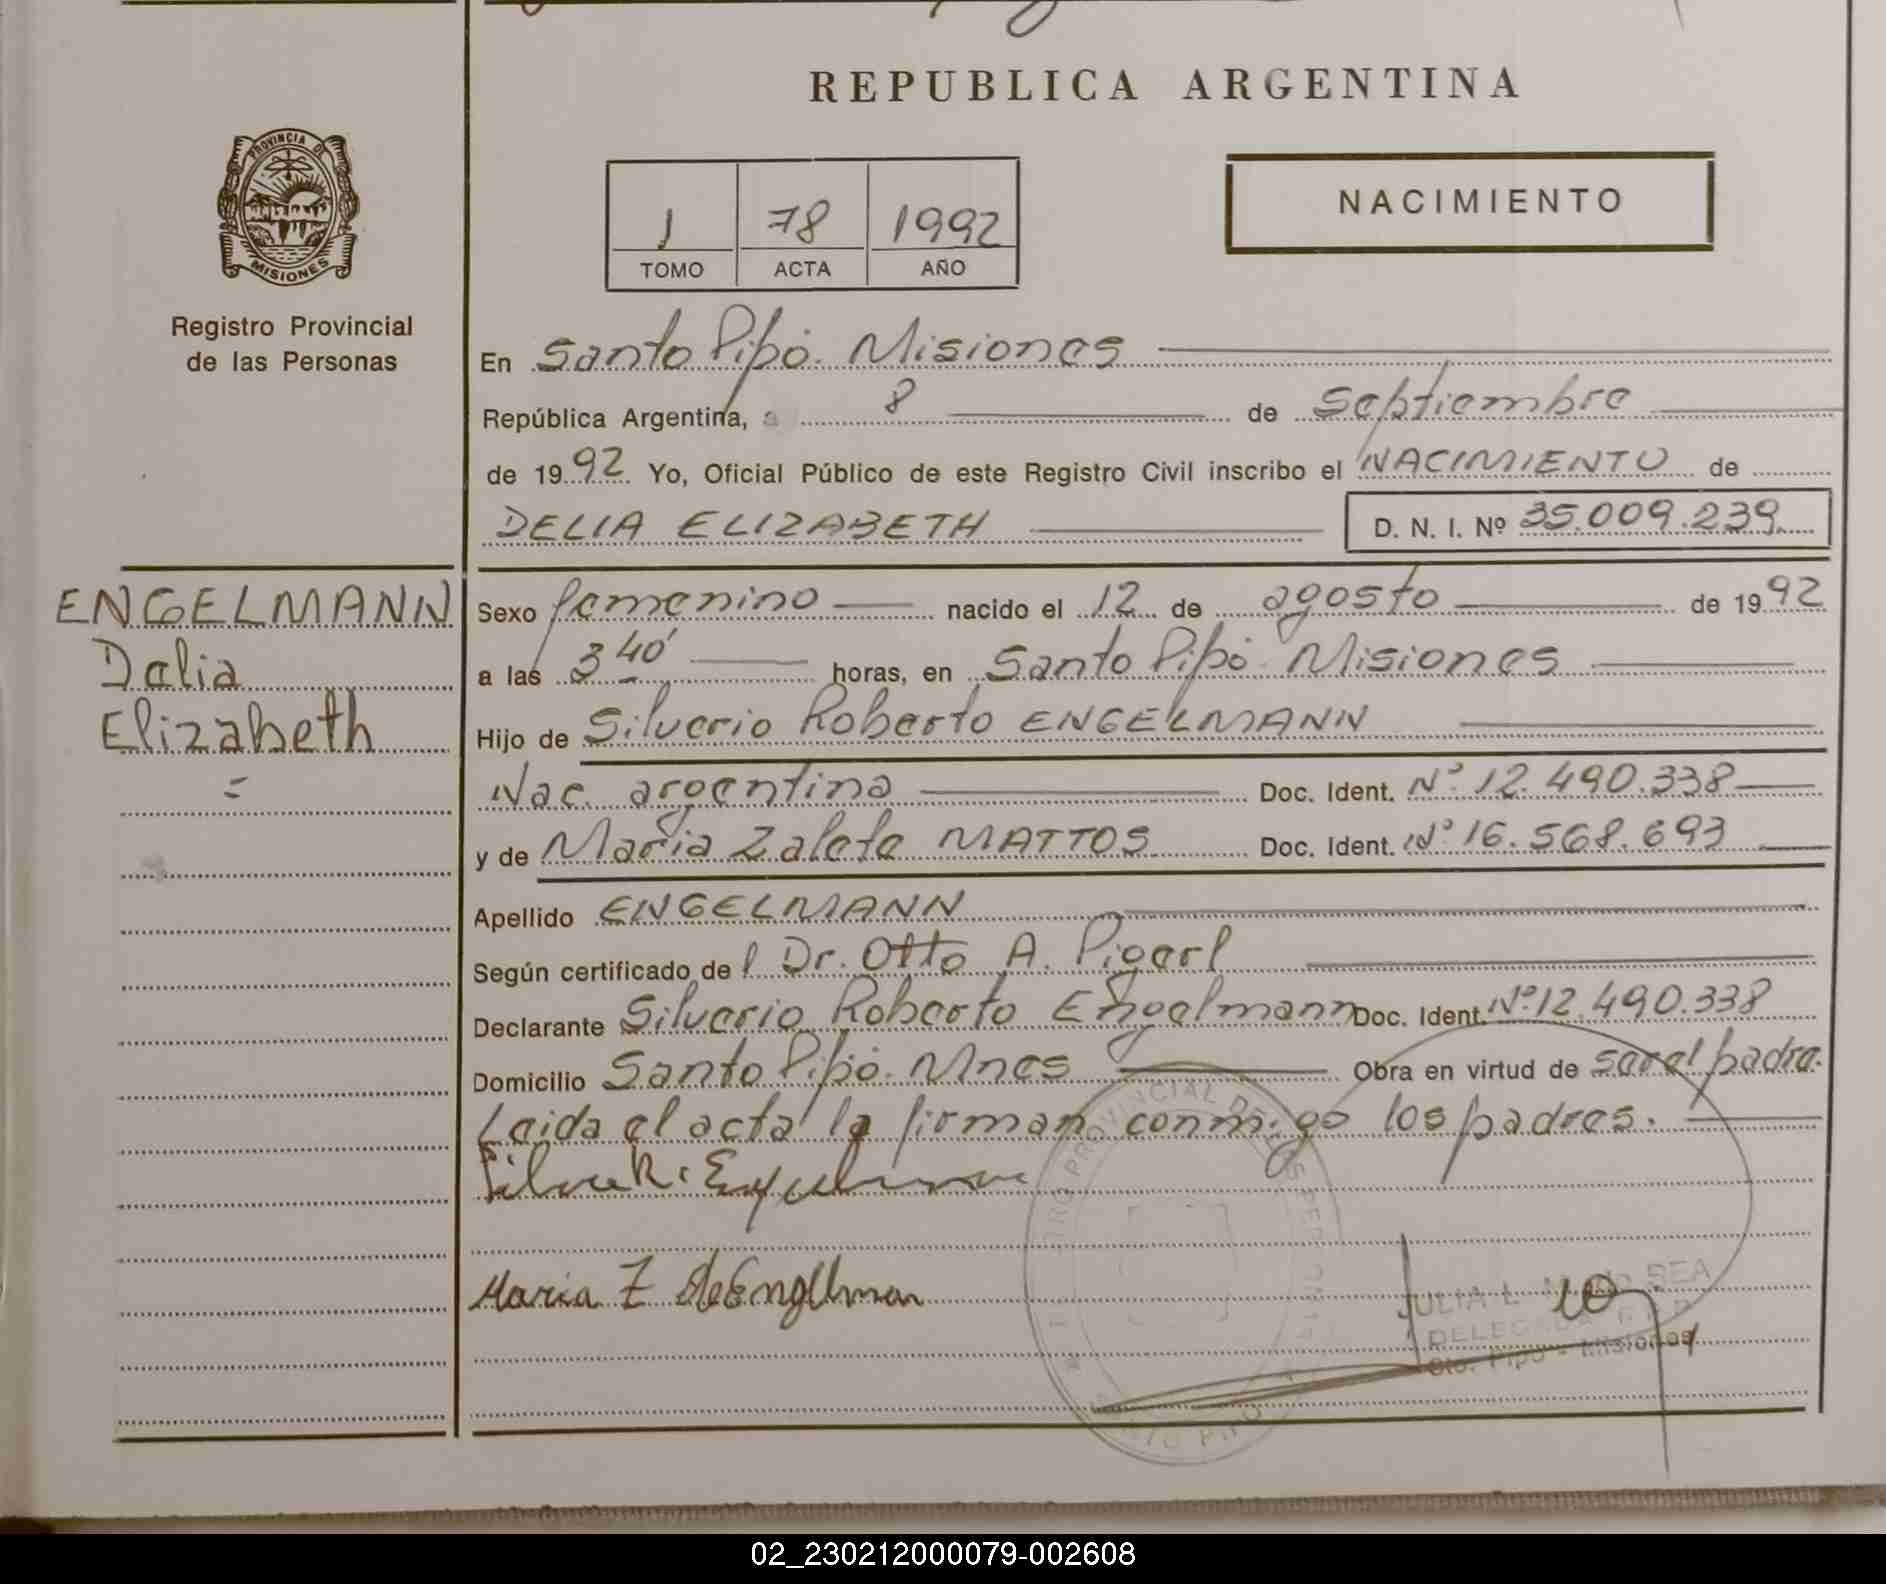 REPUBLICA ARGENTINA
PROVINCIA DE
MISIONES
Registro Provincial
de las Personas
1 78 1992
TOMO ACTA AÑO
NACIMIENTO
En Santo Pipó. Misiones
República Argentina, a 8 de Septiembre
de 1992 Yo, Oficial Público de este Registro Civil inscribo el NACIMIENTO de
DELIA ELIZABETH D. N. I. Nº 35.009.239
ENGELMANN
Delia
Elizabeth
=
Sexo femenino nacido el 12 de agosto de 1992
a las 3 40' horas, en Santo Pipó. Misiones
Hijo de Silverio Roberto ENGELMANN
Nac. argentina Doc. Ident. Nº 12.490.338
y de Maria Zalete MATTOS Doc. Ident. Nº 16.568.693
Apellido ENGELMANN
Según certificado del Dr. Otto A. Pigerl
Declarante Silverio Roberto Engelmann Doc. Ident. Nº 12.490.338
Domicilio Santo Pipó. Mnes Obra en virtud de ser el padre.
Leida el acta la firman conmigo los padres.
Maria Z de Engelman
JULIA L.
DELEGADA
Sto. Pipó - Misiones
02_230212000079-002608